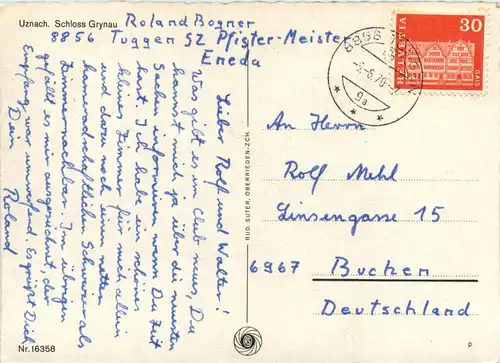 Uznach. Schloss Grynau
Roland Bogner
8856 Tuggen SZ Pfister-Meister
Eneda
Lieber Rolf und Walter!
Was gibt es im Club neues, Du
kannst mich ja über die neusten
Sachen informieren wenn Du Zeit
hast. Ich habe ein schönes
kleines Zimmer für mich allein
und dazu noch einen netten
kundschaftlichen Schweizer als
Zimmernachbar. Im übrigen
gefällt es mir ausgezeichnet der
Empfang war umwerfend. Es grüsst Dich
Dein Roland
Nr. 16358
RUD. SUTER, OBERRIEDEN-ZCH.
8856
-5.6.70-
9a
HELVETIA
30
GAIS
An Herrn
Rolf Mehl
Linsengasse 15
6967 Buchen
Deutschland
p